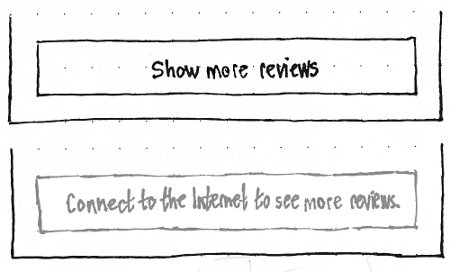 Show more reviews
Connect to the Internet to see more reviews.